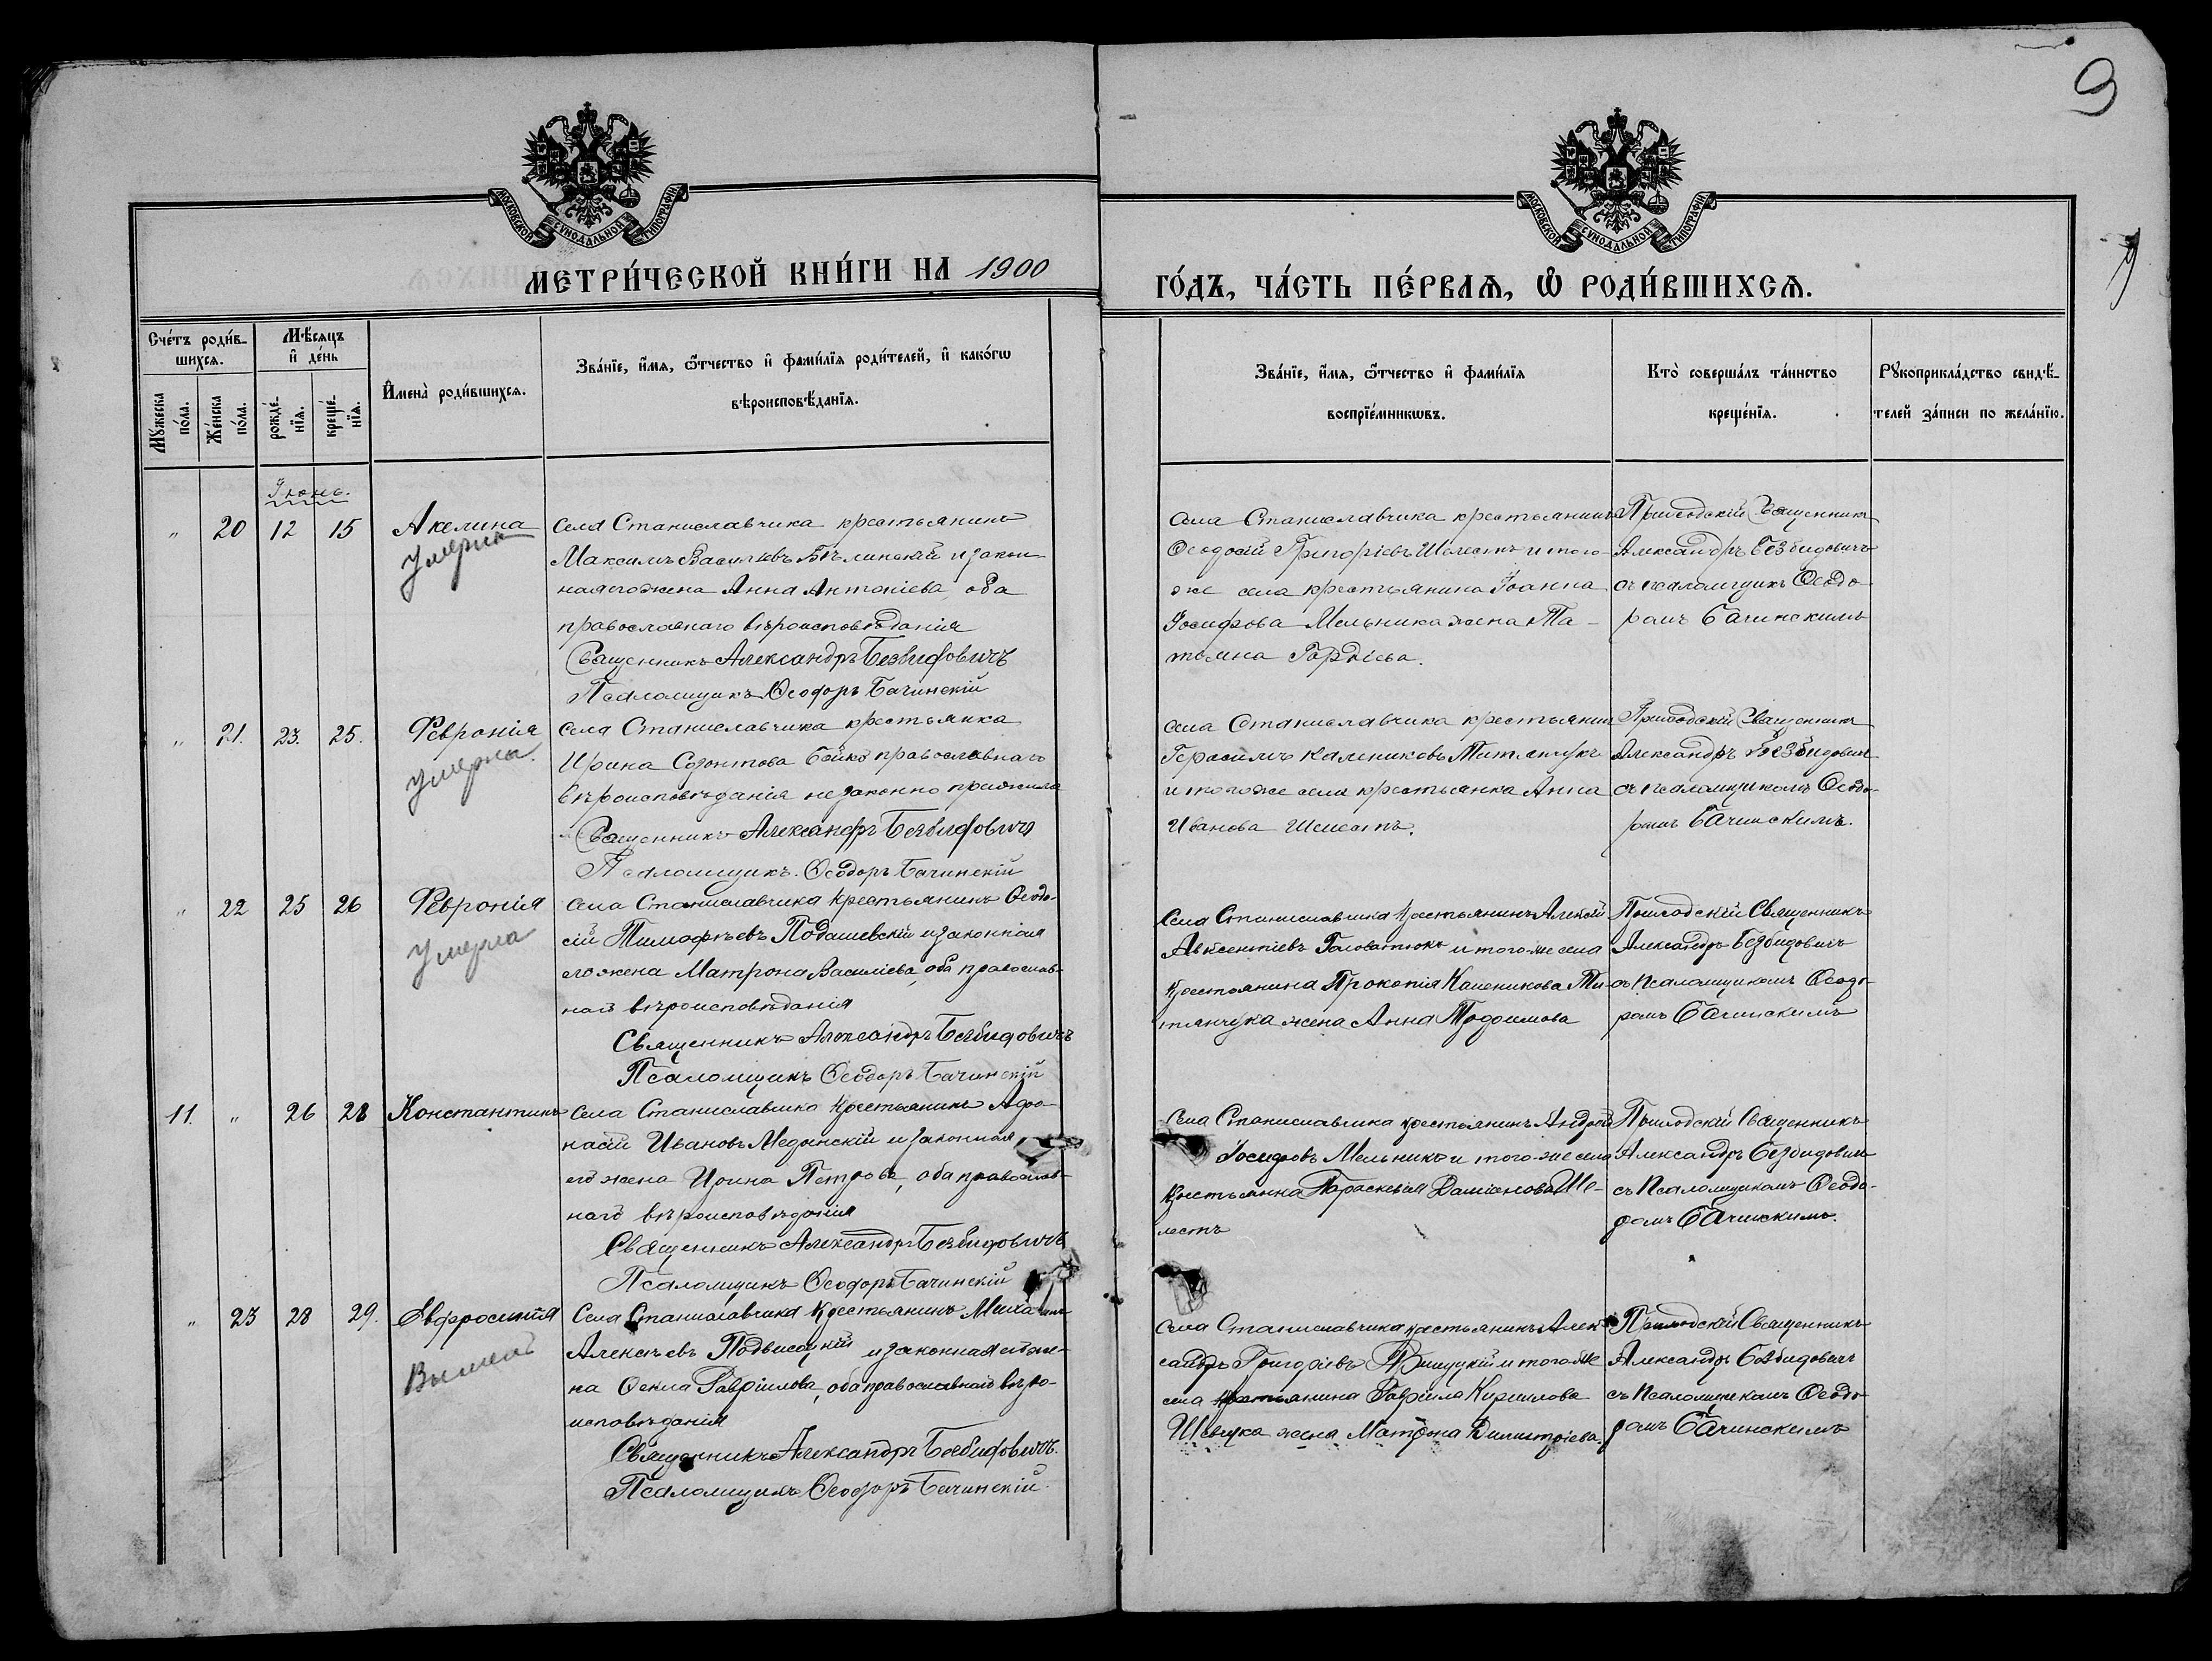 9
МОСКОВСКОЙ СѴНОДАЛЬНОЙ ТИПОГРАФІИ
МОСКОВСКОЙ СѴНОДАЛЬНОЙ ТИПОГРАФІИ
МЕТРИ́ЧЕСКОЙ КНИ́ГИ НА 1900
ГО́ДЪ, ЧА́СТЬ ПЕ́РВАѦ, Ѡ҆ РОДИ́ВШИХСѦ.
Сче́тъ роди́в-
шихсѧ.
Мꙋ́жеска по́ла.
Же́нска по́ла.
Мѣ́сяцъ
и҆ де́нь
рожде́-
нїѧ.
креще́-
нїѧ.
И҆мена̀ роди́вшихсѧ.
Зва́нїе, и҆́мѧ, ѻ҆́тчество и҆ фами́лїѧ роди́телей, и҆ како́гѡ
вѣроисповѣ́данїѧ.
Зва́нїе, и҆́мѧ, ѻ҆́тчество и҆ фами́лїѧ
воспрїе́мникѡвъ.
Кто̀ соверша́лъ та́инство
креще́нїѧ.
Рꙋкоприкла́дство свидѣ́-
телей за́писи по жела́нїю.
Іюнь.
" 20 12 15 Акелина
Умерла
Села Станиславчика крестьянинъ
Максимъ Васильевъ Бѣлинскій и закон-
ная его жена Анна Антоніева, оба
православнаго вѣроисповѣданія
Священникъ Александръ Безвидовичъ
Псаломщикъ Ѳеодоръ Бачинскій
Села Станиславчика крестьянинъ
Ѳеодосій Григоріевъ Шелестъ и того-
же села крестьянина Іоанна
Іосифова Мельника жена Та-
тіяна Гордіева.
Приходскій Священникъ
Александръ Безвидовичъ
съ псаломщикомъ Ѳеодо-
ромъ Бачинскимъ
" 21. 23. 25. Февронія
Умерла.
Села Станиславчика крестьянка
Ирина Созонтова Бойко православнаго
вѣроисповѣданія незаконно прижила
Священникъ Александръ Безвидовичъ
Псаломщикъ Ѳеодоръ Бачинскій
Села Станиславчика крестьянинъ
Герасимъ Калениковъ Титянчукъ
и того же села крестьянка Анна
Иванова Шелестъ.
Приходскій Священникъ
Александръ Безвидовичъ
съ псаломщикомъ Ѳеодо-
ромъ Бачинскимъ.
" 22 25 26 Февронія
Умерла
Села Станиславчика крестьянинъ Ѳеодо-
сій Тимофѣевъ Подашевскій и законная
его жена Матрона Василіева, оба православ-
наго вѣроисповѣданія
Священникъ Александръ Безвидовичъ
Псаломщикъ Ѳеодоръ Бачинскій
Села Станиславчика крестьянинъ Алексій
Авксентіевъ Головатюкъ и того-же села
крестьянина Прокопія Каленикова Ти-
тянчука жена Анна Трофимова
Приходскій Священникъ
Александръ Безвидовичъ
съ Псаломщикомъ Ѳеодо-
ромъ Бачинскимъ
11. " 26 28 Константинъ
Села Станиславчика крестьянинъ Афа-
насій Ивановъ Медянскій и законная
его жена Ирина Петрова, оба православ-
наго вѣроисповѣданія
Священникъ Александръ Безвидовичъ
Псаломщикъ Ѳеодоръ Бачинскій
Села Станиславчика крестьянинъ Андрей
Іосифовъ Мельникъ и того-же села
крестьянка Параскевія Даміанова Ше-
лестъ
Приходскій Священникъ
Александръ Безвидовичъ
съ Псаломщикомъ Ѳеодо-
ромъ Бачинскимъ.
" 23 28 29. Евфросинія
Села Станиславчика крестьянинъ Михаилъ
Алексѣевъ Подвисоцкій и законная его же-
на Ѳекла Гавріилова, оба православнаго вѣро-
исповѣданія
Священникъ Александръ Безвидовичъ.
Псаломщикъ Ѳеодоръ Бачинскій.
Села Станиславчика крестьянинъ Алек-
сандръ Григоріевъ и того же
села крестьянина Гавріила Кирилова
Шевчука жена Матрона Димитріева.
Приходскій Священникъ
Александръ Безвидовичъ
съ Псаломщикомъ Ѳеодо-
ромъ Бачинскимъ